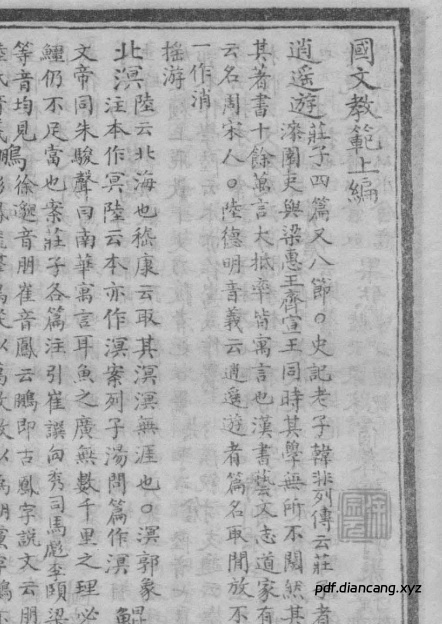 國文教範上編
逍遙遊 莊子四篇又八節○史記老子韓非列傳云莊子者
漆園吏與梁惠王齊宣王同時其學無所不闚然其
其著書十餘萬言大抵率皆寓言也漢書藝文志道家有
云名周宋人○陸德明音義云逍遙遊者篇名取閒放不
一作消
搖游
北溟 陸云北海也嵇康云取其溟溟無涯也○溟郭象
注本作冥陸云本亦作溟案列子湯問篇作溟 鯤
文帝同朱駿聲曰南華寓言耳魚之廣無數千里之理必
鱷仍不足當也案莊子各篇注引崔譔向秀司馬彪李頤梁
等音均見 鵬 徐邈音朋崔音鳳云鵬即古鳳字說文云朋
pdf.diancang.xyz